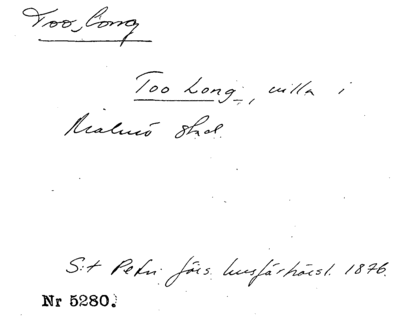 Too Long
Too Long, villa i
Malmö stad.
S:t Petri förs. husförhörsl. 1876.
Nr 5280.